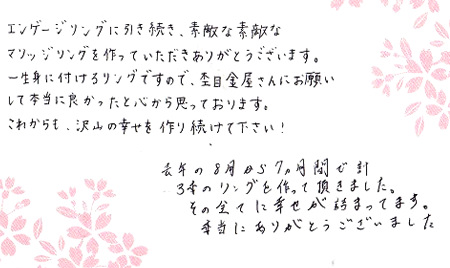 エンゲージリングに引き続き、素敵な素敵な
マリッジリングを作っていただきありがとうございます。
一生身に付けるリングですので、杢目金屋さんにお願い
して本当に良かったと心から思っております。
これからも、沢山の幸せを作り続けて下さい！
去年の8月から7ヵ月間で計
3本のリングを作って頂きました。
その全てに幸せが詰まってます。
本当にありがとうございました